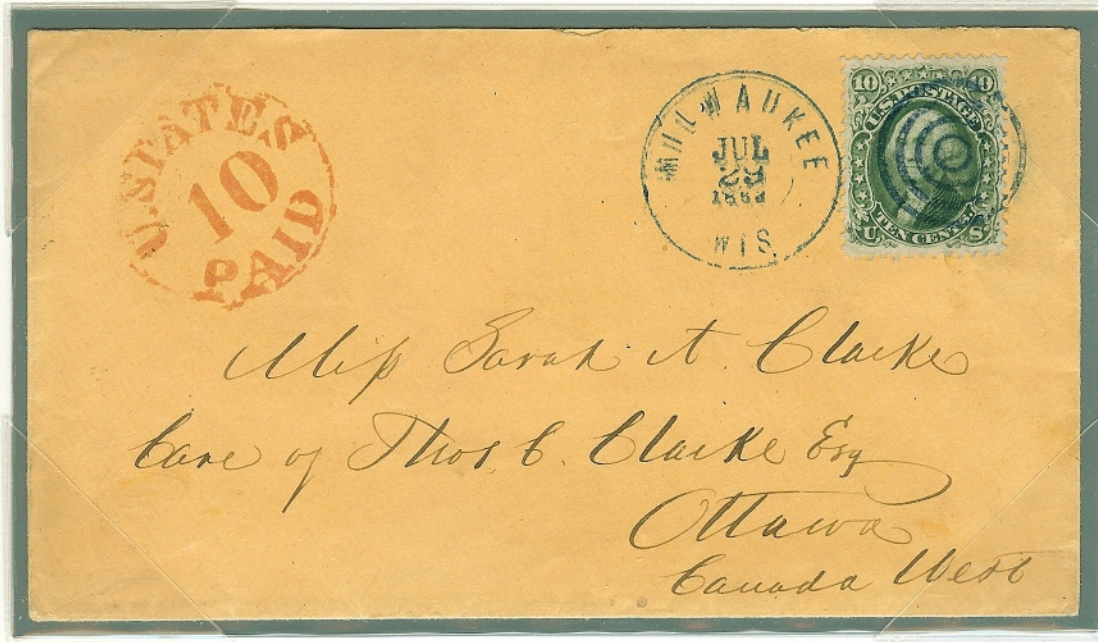 U.STATES
10
PAID
MILWAUKEE
JUL
29
WIS.
10 10
U.S. POSTAGE
TEN CENTS.
U. S
Miss Sarah A. Clarke
Care of Thos. C. Clarke Esq
Ottawa
Canada West